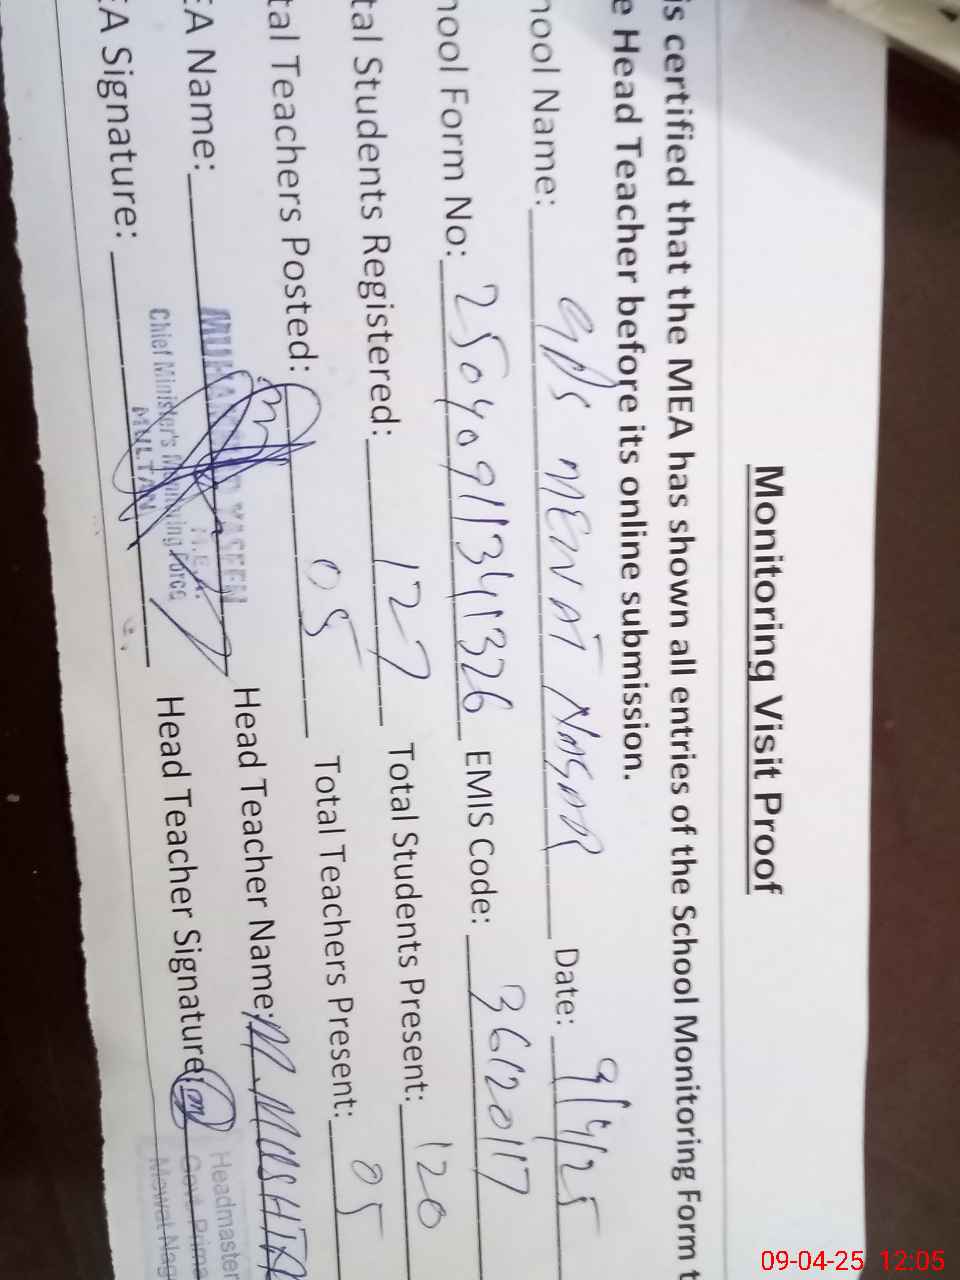 Monitoring Visit Proof
is certified that the MEA has shown all entries of the School Monitoring Form t
e Head Teacher before its online submission.
hool Name: GPS MEWAT NAGAR Date: 9/4/25
hool Form No: 25040911341326 EMIS Code: 36120117
tal Students Registered: 127 Total Students Present: 120
tal Teachers Posted: 05 Total Teachers Present: 05
EA Name: Head Teacher Name: M. MUSHTA
YASEEN
M.E.A.
EA Signature: Head Teacher Signature:
Chief Minister's Monitoring Force
MULTAN
Headmaster
Govt. Prima
Mewat Nag
09-04-25 12:05